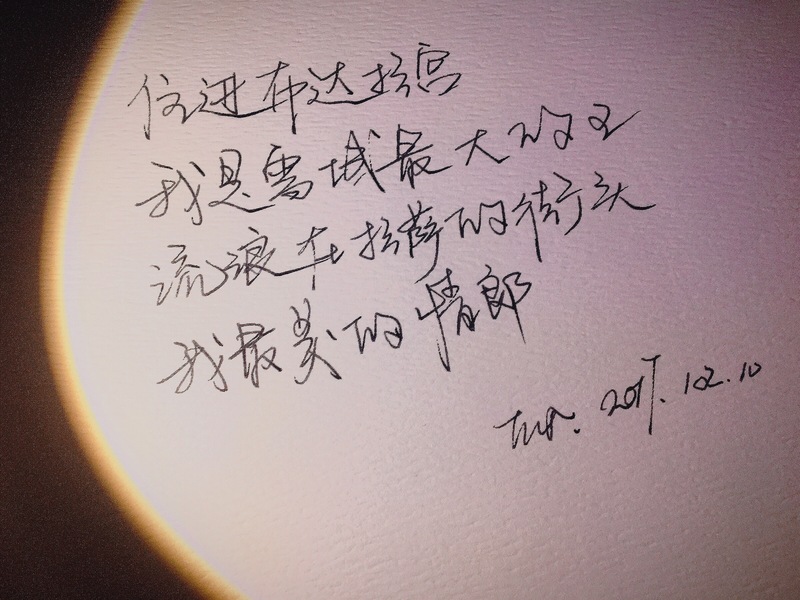 住进布达拉宫
我是雪域最大的王
流浪在拉萨的街头
我最美的情郎
2017.12.10